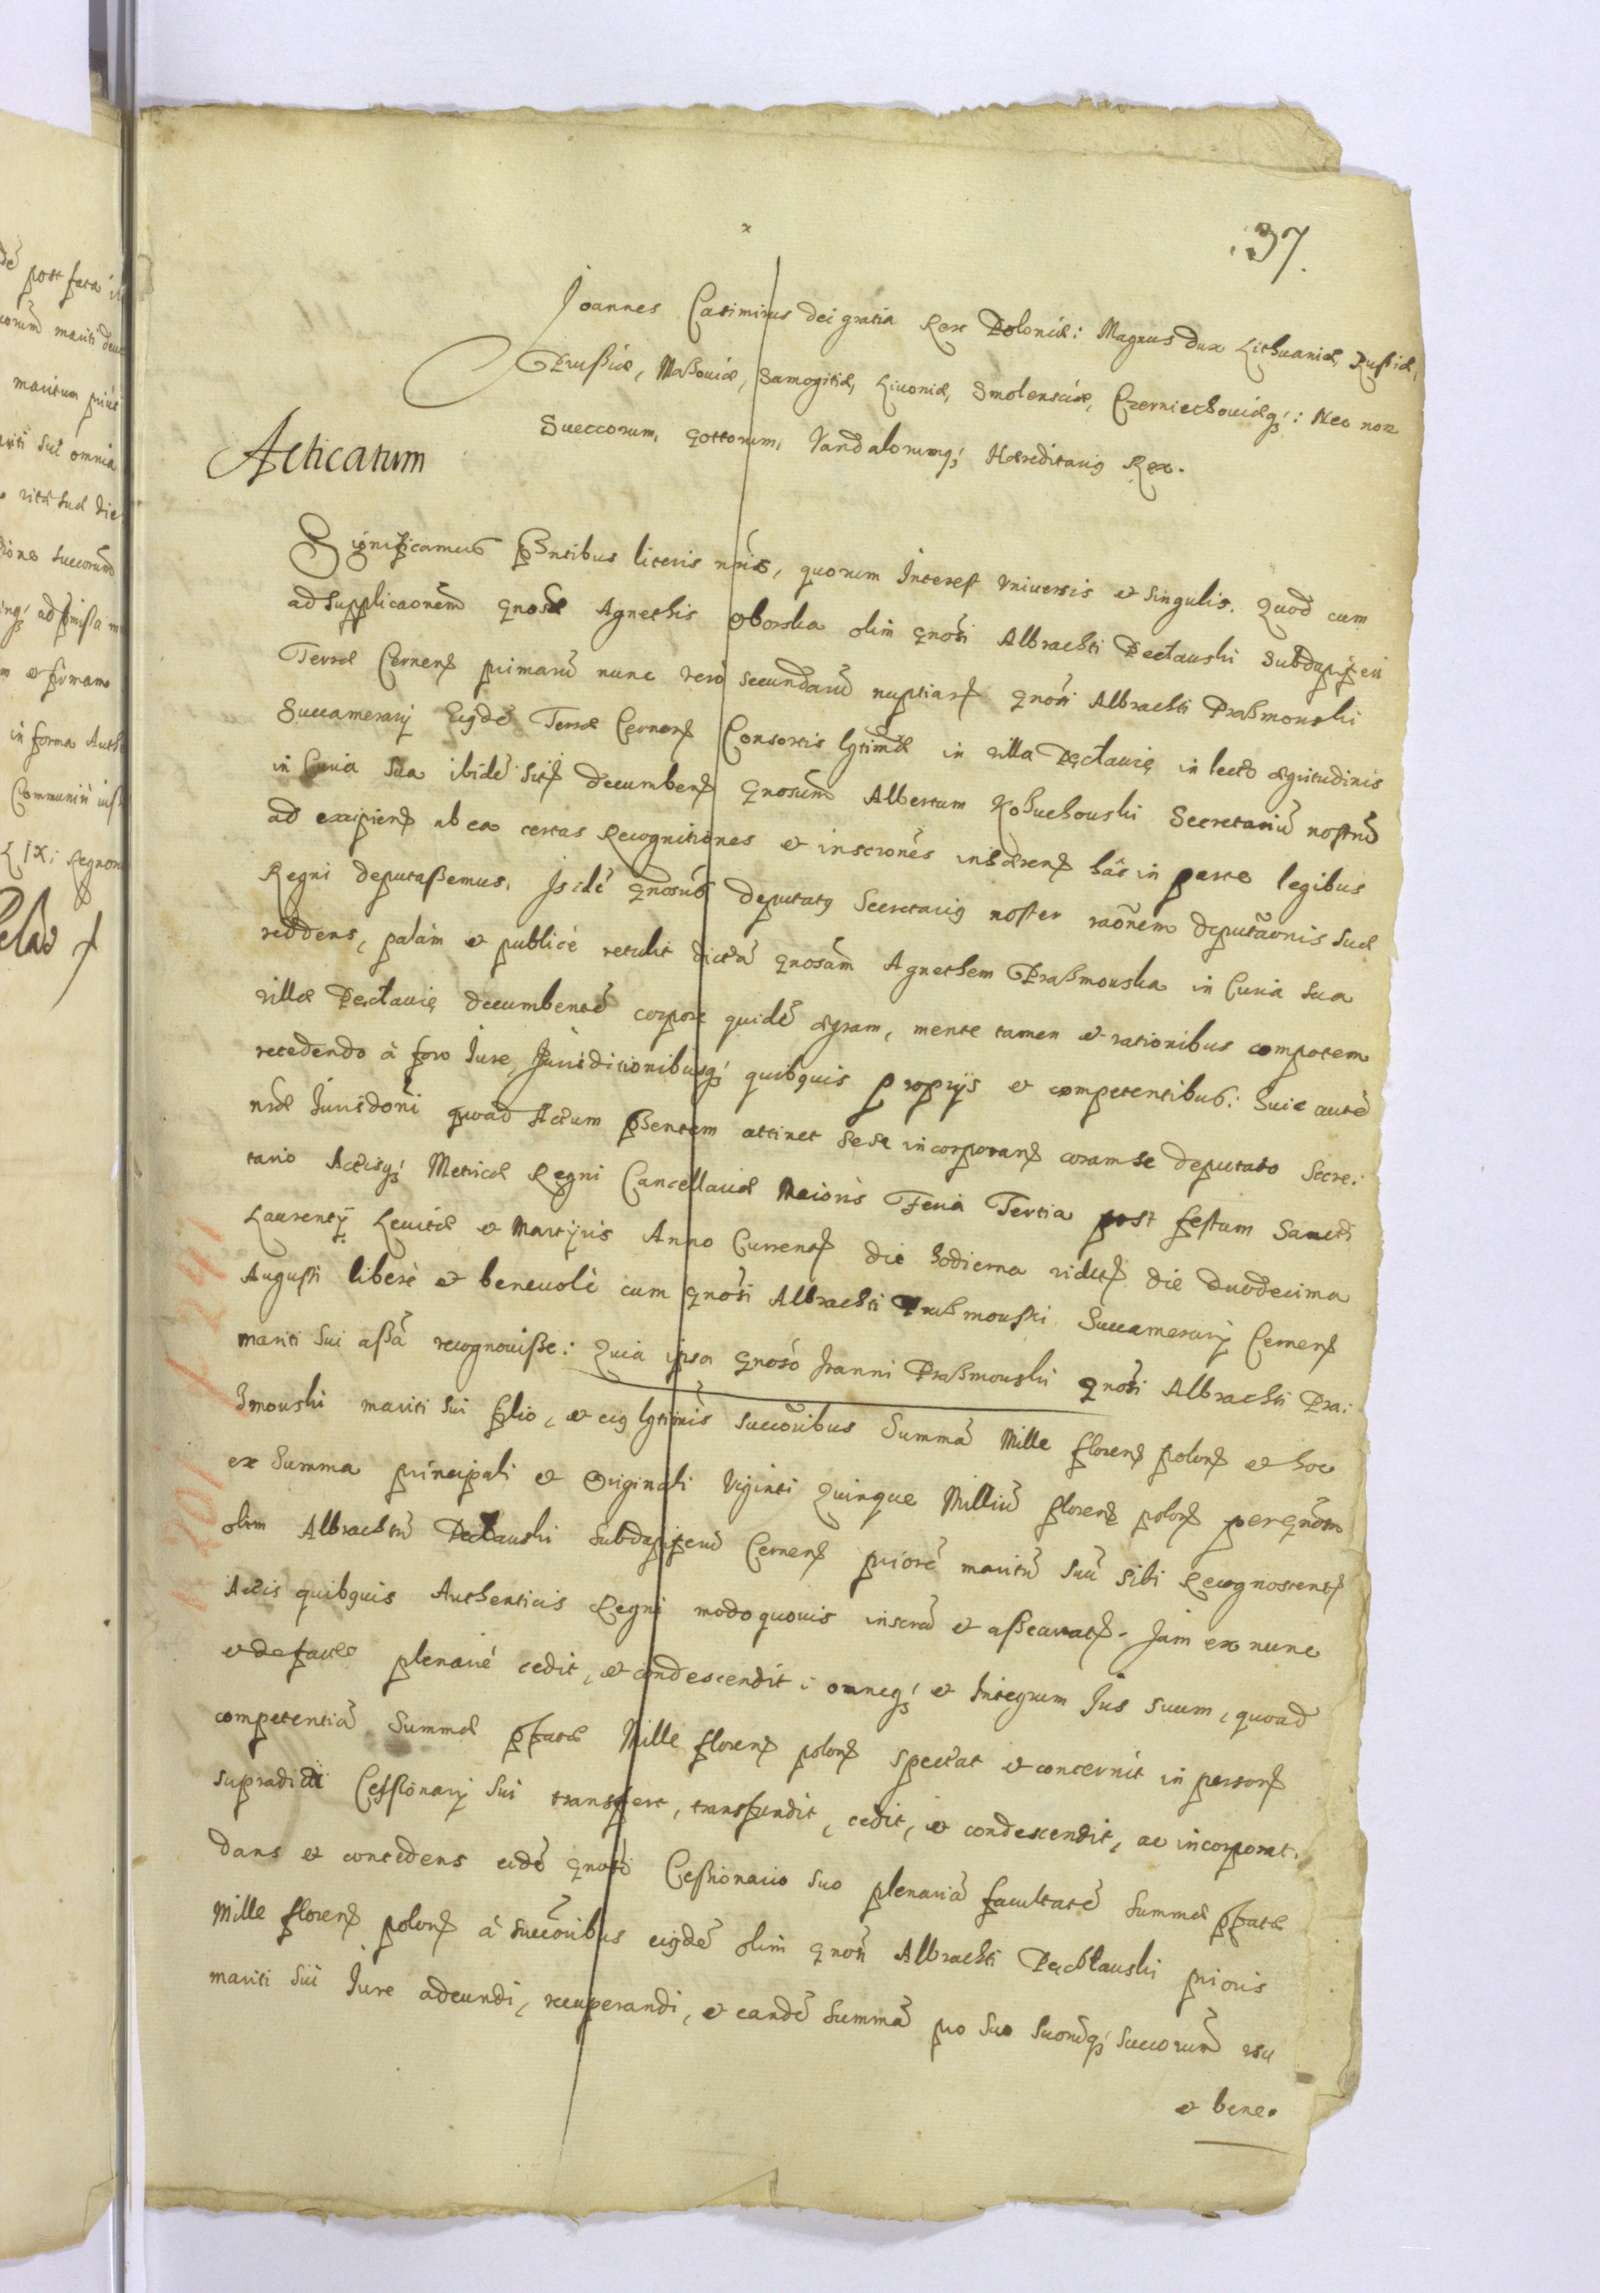 37.
Joannes Casimirus Dei gratia Rex Poloniæ: Magnus Dux Lithuaniæ, Russiæ,
Prussiæ, Massouiæ, Samogitiæ, Liuoniæ, Smolensciæ, Czerniechouiæq;: Nec non
Sueccorum, Gottorum, Vandalorumq; Hæreditariq Rex.
Acticatum
Significamus pñtibus literis nr̃is, quorum Interest Vniuersis et Singulis. Quod cum
ad supplicaõnem gñosæ Agnethis Oborska olim gñosi Albrachti Pectauski Subdapiferi
Terræ Cernens̃ primarũ nunc vero secundarũ nuptiars̃ gñosi Albrachti Prasmouski
Succamerarij Eiqdẽ Terræ Cernens̃ Consortis lgtimæ in villa Pęctauię in lecto ægritudinis
in Curia sua ibidẽ sits̃ decumbens̃ gñosum Albertum Kohuchouski Secretariũ nostrũ
ad excipiens̃ ab ea certas Recognitiones et inscriõnes inhærens̃ hâc in parte legibus
Regni deputassemus. Is idẽ gñosus deputatq Secretariq noster raõnem deputãonis suæ
reddens, palàm et publicè retulit dictã gñosam Agnethem Prasmouska in Curia sua
villæ Pectauię decumbentẽ corpore quidẽ ægram, mente tamen et rationibus compotem
recedendo à foro Iure, Iurisditionibusq; quibquis proprijs et competentibus: huic autẽ
nr̃æ Iurisdõni quoad Actum pñsentem attinet sese incorporans̃ coram se deputato Secre:
tario Actisq; Metricæ Regni Cancellariæ Maioris Feria Tertia post festum Sancti
Laurentij Leuitæ et Martyris Anno Currents̃ die hodierna videts̃ die Duodecima
Augusti liberè et beneuolè cum gñosi Albrachti Prasmouski Succamerarij Cernens̃
mariti sui assã recognouisse: Quia ipsa gñoso Joanni Prasmouski gñosi Albrachti Pra:
smouski mariti sui filio, et eiq lgtimis succõribus Summã Mille florens̃ polons̃ et hoc
ex Summa principali et Originali Viginti Quinque Milliũ florens̃ polons̃ per gñosm
olim Albrachtũ Pectauski Subdapiferũ Cernens̃ priorẽ maritũ suũ sibi Recognoscents̃
Actis quibquis Authenticis Regni modo quouis inscrã et assecurats̃. Jam ex nunc
et de facto plenariè cedit, et condescendit: omneq; et Integrum Jus suum, quoad
competentiã Summæ pfatæ Mille florens̃ polons̃ spectat et concernit in persons̃
supradicti Cessionarij sui transfert, transfundit, cedit, et condescendit, ac incorporat.
Dans et concedens eidẽ gñoso Cessionario suo plenariã facultatẽ Summæ pfatæ
Mille florens̃ polons̃ à succõribus eiqdẽ olim gñosi Albrachti Pectauski prioris
mariti sui Iure adeundi, recuperandi, et eandẽ Summã pro suo suorũq; succorum usu
et bene.